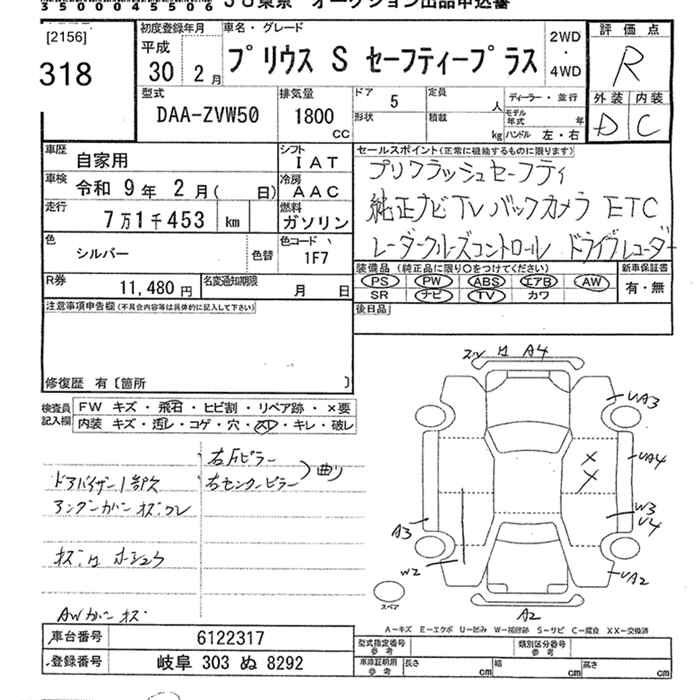 35000045506 JU東京 オークション出品申込書
[2156]
318
初度登録年月
平成
30年 2月
車名・グレード
プリウス S セーフティープラス
2WD・4WD
評価点
R
外装 内装
D C
型式
DAA-ZVW50
排気量
1800 cc
ドア 5
形状
定員 人
積載 kg
ディーラー・並行
モデル年式 年
ハンドル 左・右
車歴 自家用
シフト IAT
車検 令和 9年 2月( 日)
冷房 AAC
走行 7万1千453 km
燃料 ガソリン
色 シルバー 色替
色コード 1F7
R券 11,480円
名変通知期限 月 日
セールスポイント(正常に機能するものに限ります)
プリクラッシュセーフティ
純正ナビTVバックカメラ ETC
レーダークルーズコントロール ドライブレコーダー
装備品 (純正品に限り○をつけてください)
PS PW ABS エアB AW
SR ナビ TV カワ
新車保証書
有・無
後日品
注意事項申告欄(不具合内容等は具体的に記入して下さい)
修復歴 有〔箇所 〕
検査員記入欄
FW キズ・飛石・ヒビ割・リペア跡・×要
内装 キズ・汚レ・コゲ・穴・スレ・キレ・破レ
右Fピラー
右センターピラー
曲り
ドアバイザー1部欠
アンダーカバー キズワレ
AWガリキズ
A4
UA3
UA4
W3
U4
UA2
A3
W2
A2
スペア
A−キズ E−エクボ U−凹み W−補修跡 S−サビ C−腐食 XX−交換済
車台番号 6122317
登録番号 岐阜 303 ぬ 8292
型式指定番号 参考
類別区分番号 参考
車庫証明用 参考 長さ cm 幅 cm 高さ cm